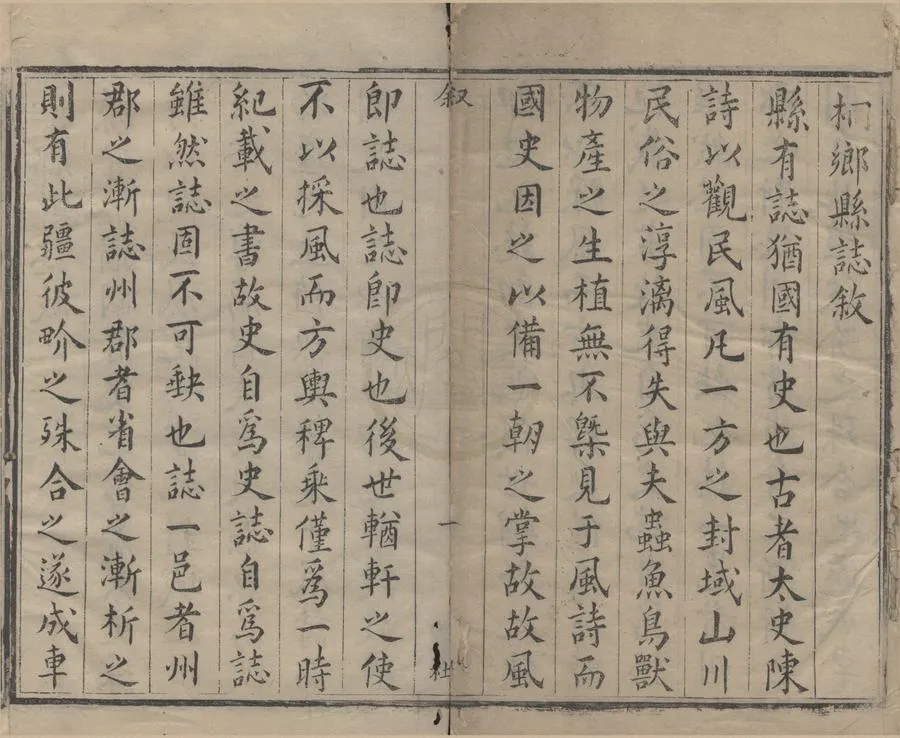 桐鄉縣誌敘
縣有誌猶國有史也古者太史陳
詩以觀民風凡一方之封域山川
民俗之淳漓得失與夫蟲魚鳥獸
物產之生植無不槩見于風詩而
國史因之以備一朝之掌故故風
叙 一
即誌也誌即史也後世輶軒之使
不以採風而方輿稗乘僅爲一時
紀載之書故史自爲史誌自爲誌
雖然誌固不可缺也誌一邑者州
郡之漸誌州郡者省會之漸析之
則有此疆彼畍之殊合之遂成車